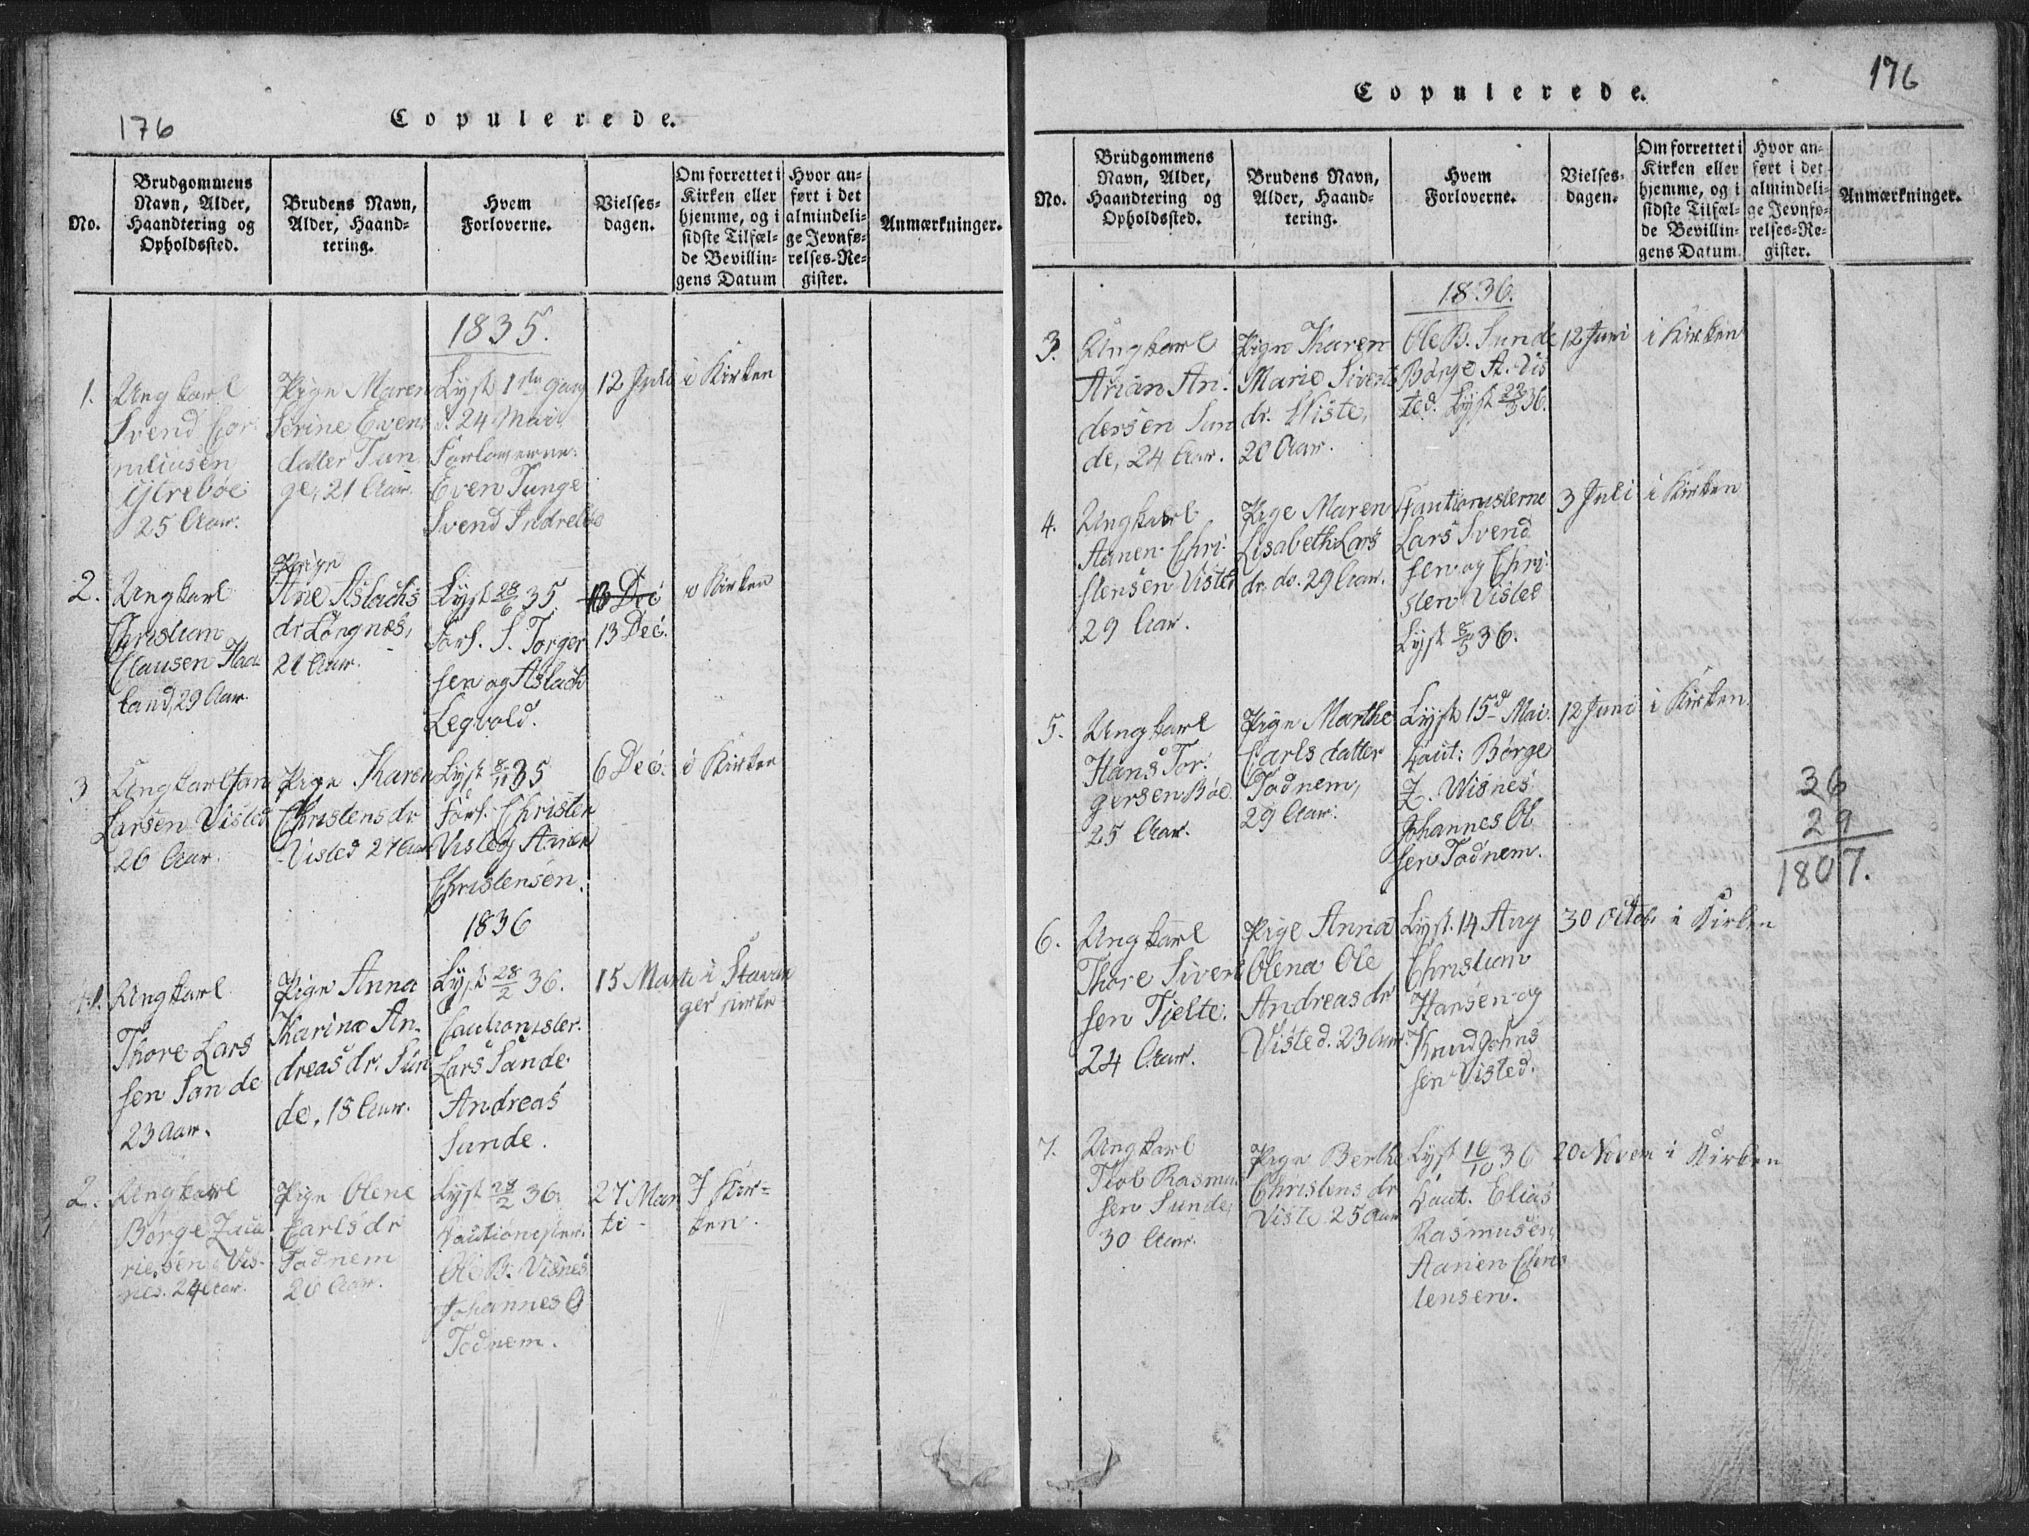 176
Copulerede.
No.
Brudgommens
Navn, Alder,
Haandtering og
Opholdssted.
Brudens Navn,
Alder, Haand-
tering.
Hvem
Forloverne.
Vielses-
dagen.
Om forrettet i
Kirken eller
hjemme, og i
sidste Tilfæl-
de Bevillin-
gens Datum
Hvor an-
ført i det
almindeli-
ge Jevnfø-
relses-Re-
gister.
Anmærkninger.
1835.
1.
Ungkarl
Svend Cor
niliusen
25 Aar.
Pige Maren
Serine Evens
datter Tun
ge, 21 Aar.
Lyst 1ste gang
d. 24 Mai
Forloverne:
Even Tunge
Svend Indrebøe
12 Juli
i Kirken
2.
Ungkarl
Christian
Clausen Haa
land, 29 Aar
Pige
Ane Aslachs
dr Longnæs,
21 Aar.
Lyst 28/6 35.
Forl. S. Torger
sen og Aslach
Legvold.
13 Dec.
i Kirken
3
Ungkarl Jan
Larsen Visted
26 Aar.
Pige Karen
Christensdr
Visted 27 Aar
Lyst 8/11 35
Forl. Christen
Vist og Arien
Christensen.
6 Dec.
i Kirken
1836
1.
Ungkarl
Thore Lars
sen Sande
23 Aar.
Pige Anna
Karina An
dreasdr. Sun
de, 18 Aar.
Lyst 28/2 36.
Cautionister.
Lars Sande
Andreas
Sunde.
15 Marti
i Stavan
ger Kirke
2.
Ungkarl
Børge Zaca
riesen Vis-
nes. 24 Aar.
Pige Olene
Carlsdr
Todnem
20 Aar.
Lyst 28/2 36.
Cautionister.
Ole B. Visnes
Johannes O
Todnem.
27 Mar
ti -
I Kir=
ken.
176
Copulerede.
No.
Brudgommens
Navn, Alder,
Haandtering og
Opholdssted.
Brudens Navn,
Alder, Haand-
tering.
Hvem
Forloverne.
Vielses-
dagen.
Om forrettet i
Kirken eller
hjemme, og i
sidste Tilfæl-
de Bevillin-
gens Datum.
Hvor an-
ført i det
almindeli-
ge Jevnfø-
relses-Re-
gister.
Anmærkninger.
1836.
3.
Ungkarl
Arian An.
dersen Sun
de, 24 Aar.
Pige Karen
Marie Siverts
dr. Viste,
20 Aar.
Ole B. Sunde
Børge A. Vis
ted. Lyst 36.
12 Juni
i Kirken
4.
Ungkarl
Aanen Chri
stensen Visted
29 Aar.
Pige Maren
Lisabeth Lars
dr. do. 29 Aar.
Cautionisterne
Lars Svend
sen og Chri
sten Visted
Lyst 8/5 36.
3 Juli
i Kirken
5.
Ungkarl
Hans Tor
gersen Bøe
25 Aar.
Pige Marthe
Carls datter
Todnem,
29 Aar.
Lyst 15d Mai.
Caut: Børge
Z. Wisnes
Johannes Ol
sen Todnem.
12 Juni
i Kirken.
36
29
1807.
6.
Ungkarl
Thore Sivert
sen Tjelte.
24 Aar.
Pige Anna
Olena Ole
Andreasdr
Visted. 23 Aar.
Lyst. 14 Aug
Christian
Hansen og
Knud Johns
sen Visted.
30 Octob.
i Kirken
7.
Ungkarl
Rasmus
sen Sunde,
30 Aar.
Pige Berthe
Christensdr
Viste 25 Aar
Lyst 16/10 36
Caut. Elias
Rasmusen,
Aanen Chris
tensen.
20 Novem
i Kirken